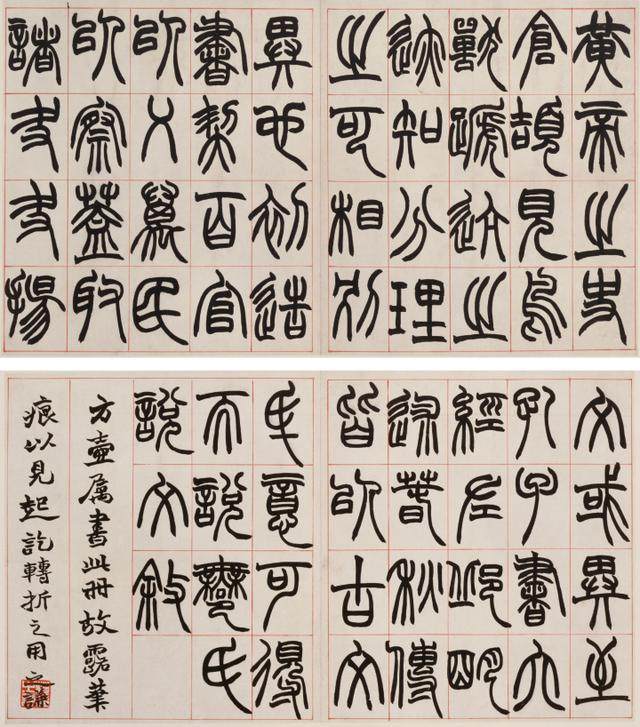 黃帝之史
倉頡見鳥
獸蹏迒之
迹知分理
之可相別
異也初造
書契百官
㠯乂萬民
㠯察蓋取
諸夬夬揚
文或異至
孔子書六
經左邱朙
述春秋傳
皆㠯古文
氒意可得
而說鄦氏
說文敘
方壺属書此冊故露筆
痕以見起訖轉折之用 之謙